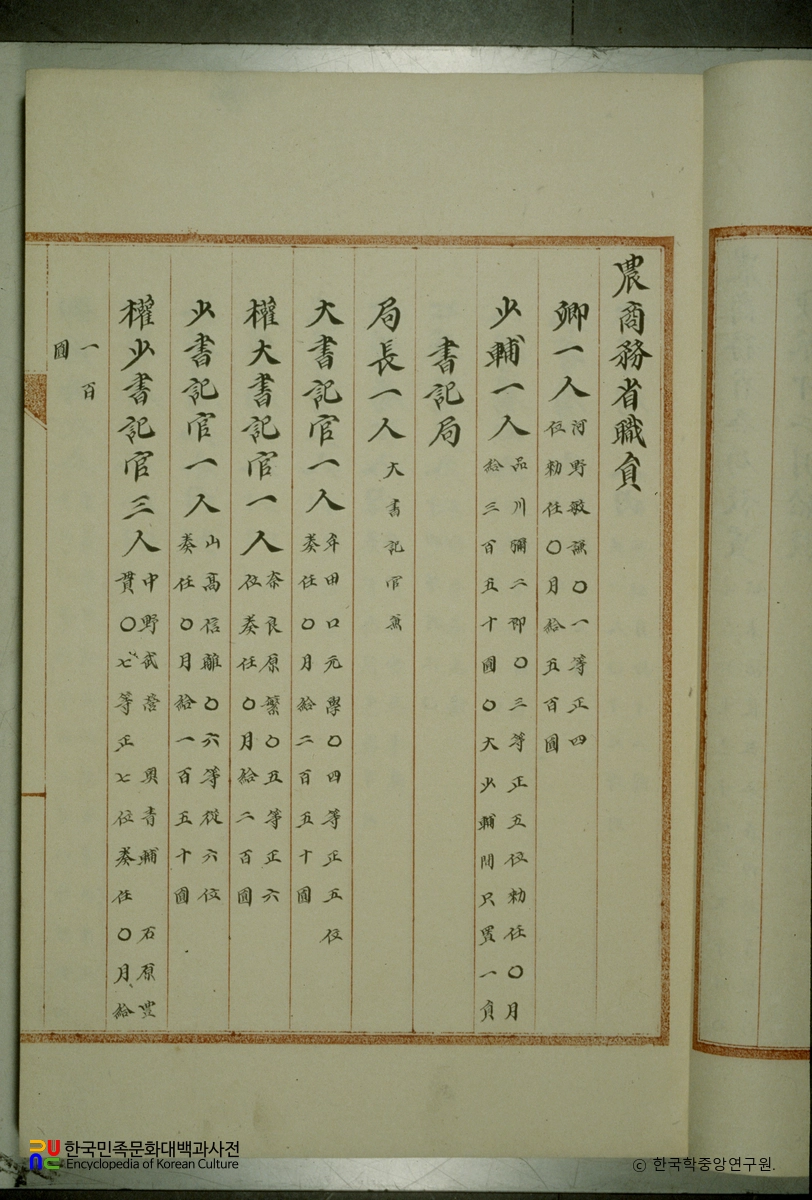 農商務省職員
卿一人 河野敏謙〇一等正四位勅任〇月給五百圓
少輔一人 品川彌二郎〇三等正五位勅任〇月給三百五十圓〇大少輔間只置一員
書記局
局長一人 大書記官兼
大書記官一人 牟田口元學〇四等正五位奏任〇月給二百五十圓
權大書記官一人 奈良原繁〇五等正六位奏任〇月給二百圓
少書記官一人 山高信離〇六等從六位奏任〇月給一百五十圓
權少書記官三人 中野武營 奥青輔 石原豊貫〇七等正七位奏任〇月給
一百圓
한국민족문화대백과사전
Encyclopedia of Korean Culture
© 한국학중앙연구원.